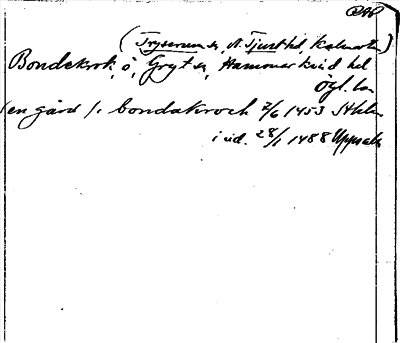 (Tryserum sn, N. Tjust hd, Kalmar län)
Bondekrok, ö, Gryt sn, Hammarkind hd
Ögl. län
(en gård) i. bondakroch 2/6 1453 Sthlm
i vid. 28/1 1488 Uppsala